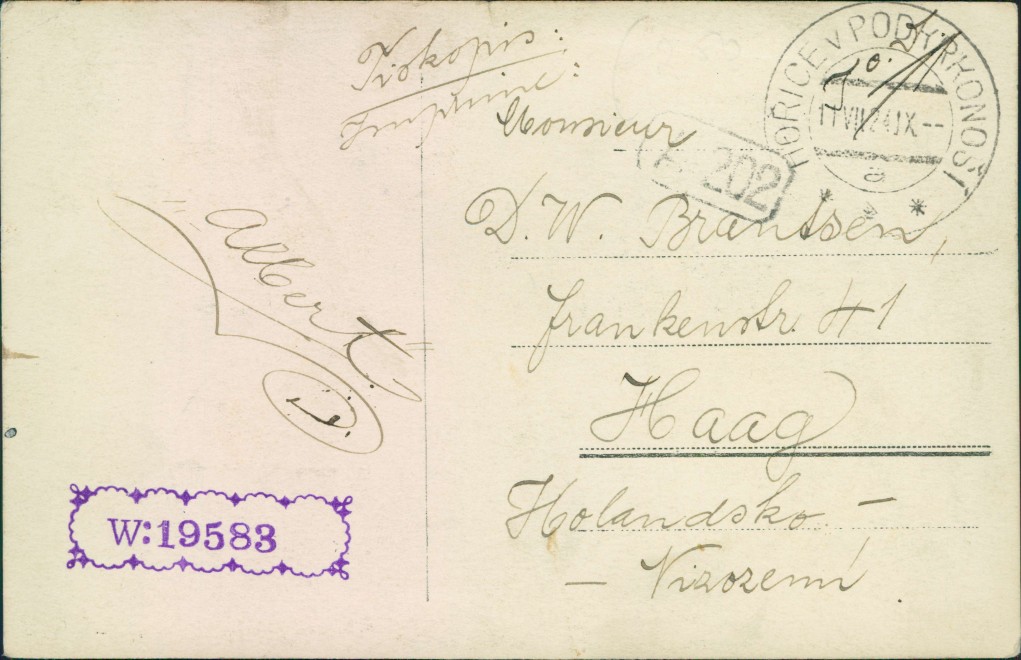 Tiskopis:
Imprimé:
HOŘICE V PODKRKONOŠÍ
11.VII.24.IX--
a
Monsieur
202
D. W. Brantsen,
frankenstr. 41
Haag
Holandsko -
- Nizozemí
"Albert."
W:19583